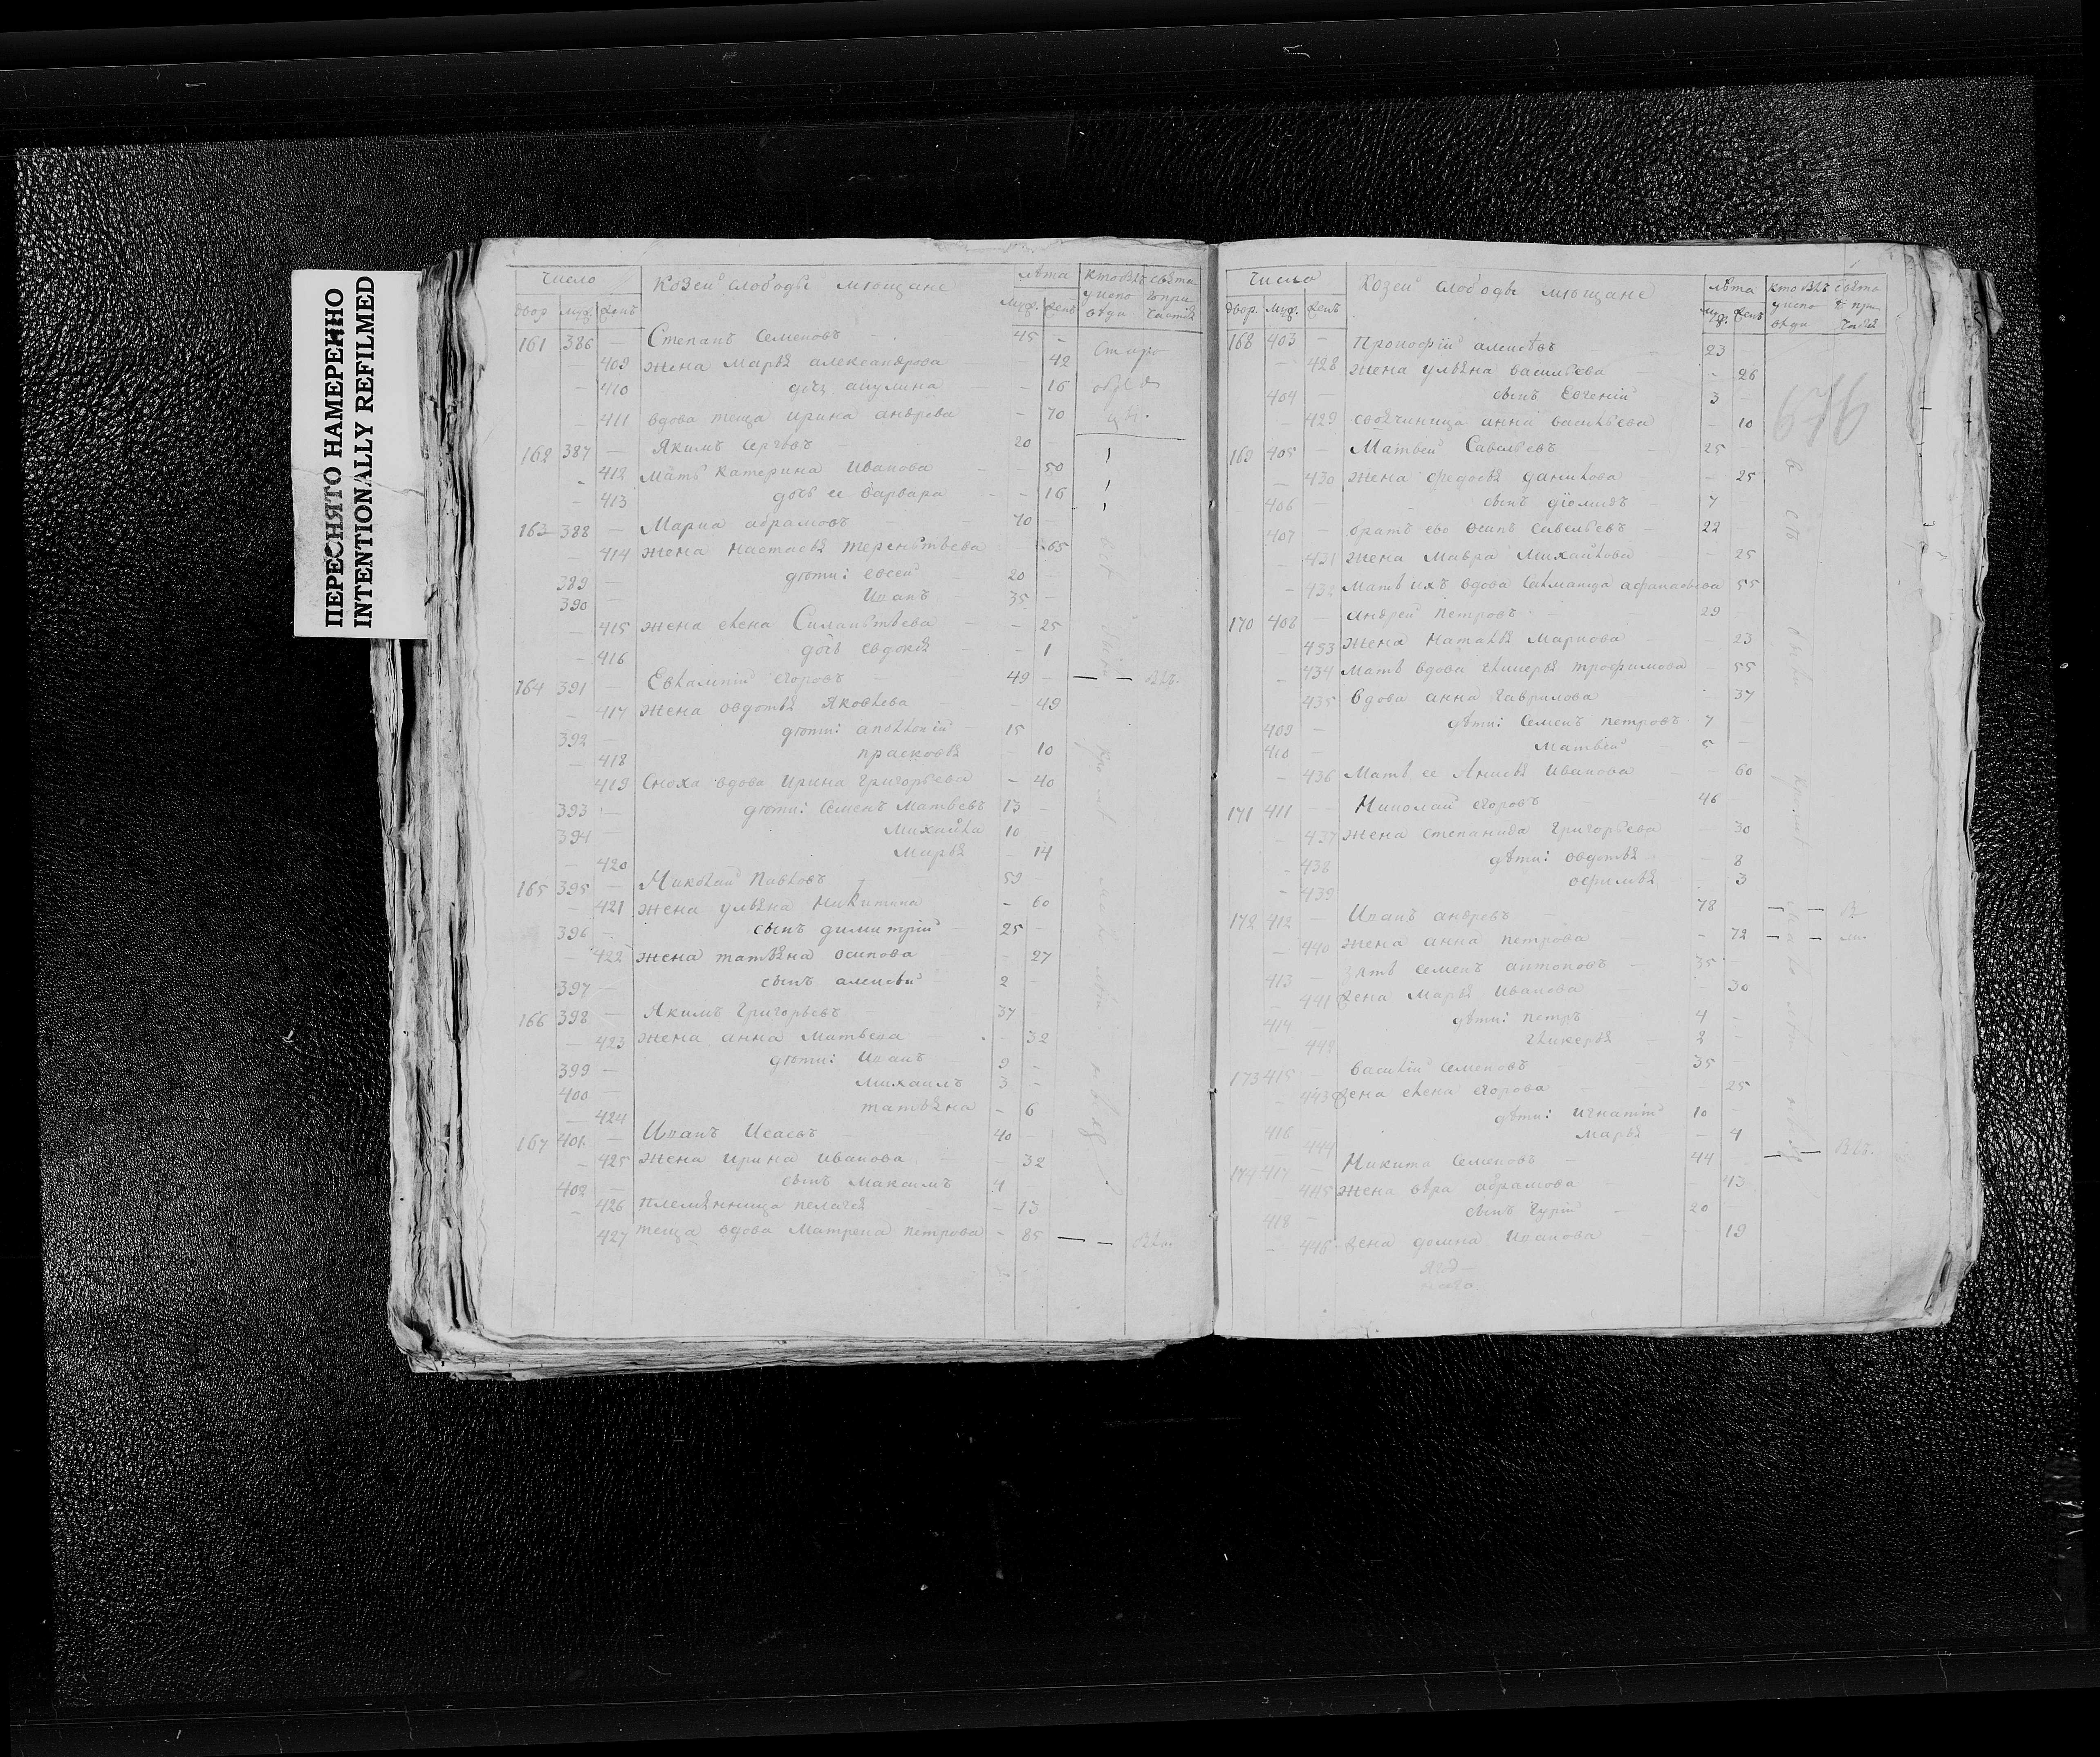 ПЕРЕСНЯТО НАМЕРЕННО
INTENTIONALLY REFILMED
Число Козей слободы мѣщане лѣта кто былъ у испо вѣди
двор. муж. женъ муж. женъ
161 386 — Степанъ Семеновъ 45 —
— 409 жена Марья александрова 42
— 410 дочь акулина — 16
411 вдова теща ирина андрева — 70
162 387 — Якимъ Сергѣвъ 20
— 412 мать катерина Иванова — 50
— 413 дочь ее варвара — 16
163 388 — Марка абрамовъ 70
414 жена настасья терентьева 65
389 — дѣти: евсей 20 —
390 — Иванъ 35 —
— 415 жена елена Силантьева — 25
— 416 дочь евдокія — 1
164 391 — Евлампій егоровъ 49 —
— 417 жена овдотья Яковлева — 49
392 — дѣти: аполлоній 15
— 418 прасковья — 10
419 Сноха вдова ирина григорьева — 40
393 — дѣти: Семенъ Матвевъ 13 —
394 — Михайла 10
— 420 Марья — 14
165 395 — Николай Павловъ 59 —
— 421 жена ульяна Никитина — 60
396 — сынъ димитрій 25 —
— 422 жена татьяна осипова — 27
397 — сынъ алексѣй 2
166 398 — Якимъ григорьевъ 37
— 423 жена анна матвева — 32
399 — дѣти: Иванъ 9 —
400 — михаилъ 3 —
— 424 татьяна — 6
167 401 — Иванъ Исаевъ 40 —
— 425 жена ирина иванова 32
402 — сынъ Максимъ 4
— 426 племянница пелагея — 13
427 теща вдова Матрена петрова — 85 — —
Число Козей слободы мѣщане лѣта кто былъ у испо вѣди
двор. муж. женъ муж. женъ
168 403 — Прокофій алексѣвъ 23
— 428 жена ульяна васильева — 26
404 — сынъ Евгеній 3 —
429 своячиница анна васильева — 10
169 405 — Матвей Савельевъ 25 —
— 430 жена федосья данилова — 25
406 — сынъ діомидъ 7
407 — братъ ево осипъ савельевъ 22
431 жена мавра михайлова 25
— 432 Мать ихъ вдова 55
170 408 — андрей петровъ 29
433 жена наталья маркова — 23
— 434 Мать вдова гликерья трофимова — 55
435 вдова анна гаврилова 37
409 — дѣти: Семенъ петровъ 7
410 — матвей 5 —
— 436 Мать ее Анисья иванова 60
171 411 — Николай егоровъ 46
— 437 жена степанида григорьева 30
— 438 дѣти: овдотья — 8
— 439 офимья — 3
172 412 — Иванъ андревъ 78 — —
— 440 жена анна петрова — 72 — —
413 — зять семенъ антоновъ 35
— 441 жена Марья иванова 30
414 — дѣти: петръ 4 —
гликерья 2 —
173 415 — василій семеновъ 35
— 443 жена елена егорова 25
416 — дѣти: игнатій 10
444 марья — 4
174 417 — Никита Семеновъ 44 — —
445 жена вѣра абрамова 43
418 — сынъ гурій 20
— 446 жена домна иванова 19